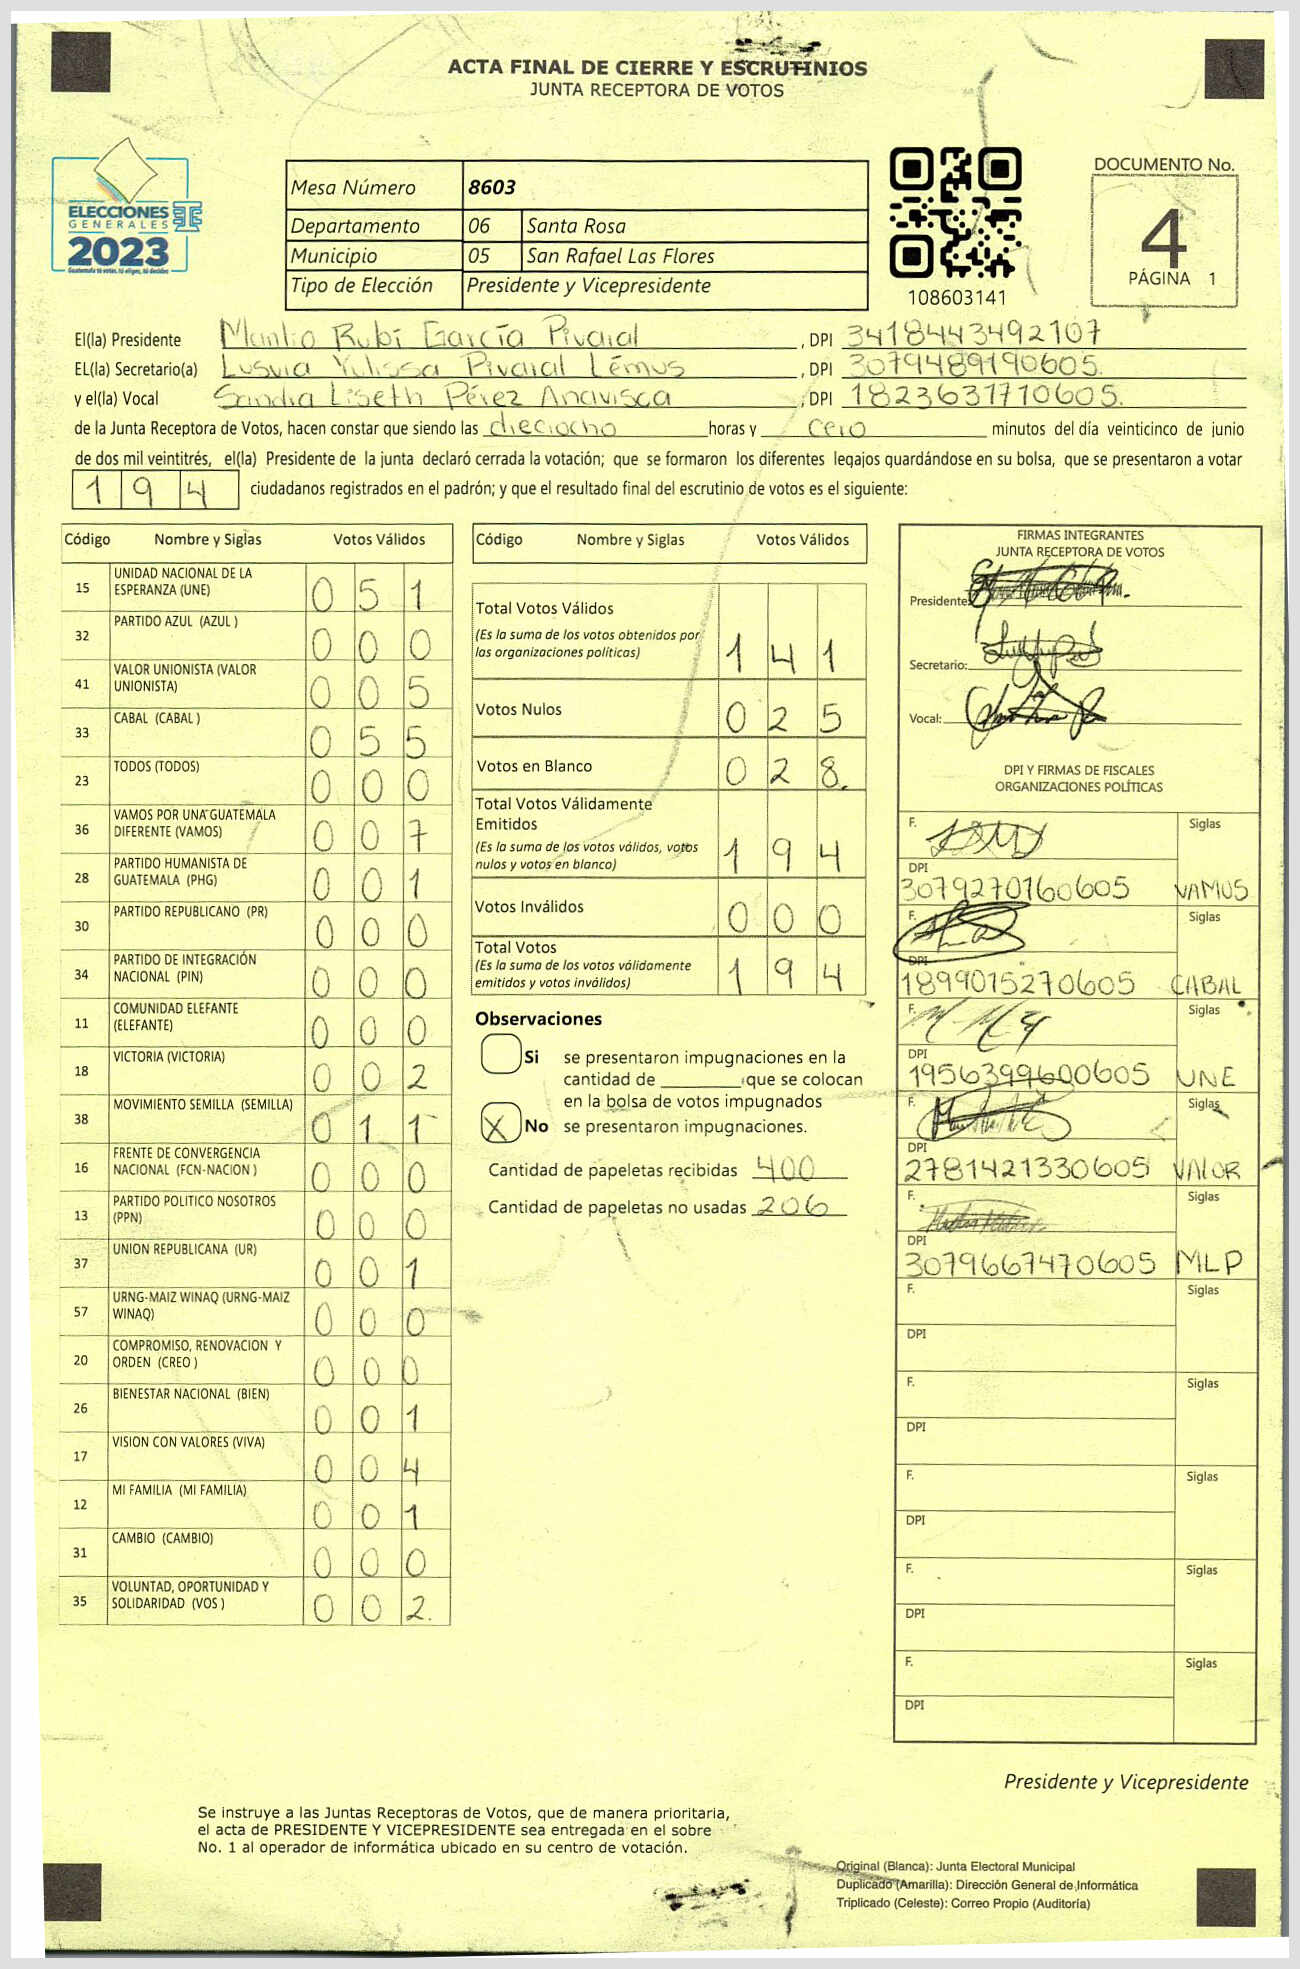 ACTA FINAL DE CIERRE Y ESCRUTINIOS
JUNTA RECEPTORA DE VOTOS
ELECCIONES
GENERALES
2023
Guatemala tú votas, tú eliges, tú decides
Mesa Número 8603
Departamento 06 Santa Rosa
Municipio 05 San Rafael Las Flores
Tipo de Elección Presidente y Vicepresidente
108603141
DOCUMENTO No.
4
PÁGINA 1
El(la) Presidente Manlio Rubí García Pivaral, DPI 3418443492107
EL(la) Secretario(a) Lusvia Yulissa Pivaral Lémus, DPI 3079489190605.
y el(la) Vocal Sandra Liseth Pérez Anavisca, DPI 1823631710605.
de la Junta Receptora de Votos, hacen constar que siendo las dieciocho horas y cero minutos del día veinticinco de junio
de dos mil veintitrés, el(la) Presidente de la junta declaró cerrada la votación; que se formaron los diferentes legajos guardándose en su bolsa, que se presentaron a votar
194 ciudadanos registrados en el padrón; y que el resultado final del escrutinio de votos es el siguiente:
Código Nombre y Siglas Votos Válidos
15 UNIDAD NACIONAL DE LA ESPERANZA (UNE) 051
32 PARTIDO AZUL (AZUL ) 000
41 VALOR UNIONISTA (VALOR UNIONISTA) 005
33 CABAL (CABAL ) 055
23 TODOS (TODOS) 000
36 VAMOS POR UNA GUATEMALA DIFERENTE (VAMOS) 007
28 PARTIDO HUMANISTA DE GUATEMALA (PHG) 001
30 PARTIDO REPUBLICANO (PR) 000
34 PARTIDO DE INTEGRACIÓN NACIONAL (PIN) 000
11 COMUNIDAD ELEFANTE (ELEFANTE) 000
18 VICTORIA (VICTORIA) 002
38 MOVIMIENTO SEMILLA (SEMILLA) 011
16 FRENTE DE CONVERGENCIA NACIONAL (FCN-NACION ) 000
13 PARTIDO POLITICO NOSOTROS (PPN) 000
37 UNION REPUBLICANA (UR) 001
57 URNG-MAIZ WINAQ (URNG-MAIZ WINAQ) 000
20 COMPROMISO, RENOVACION Y ORDEN (CREO ) 000
26 BIENESTAR NACIONAL (BIEN) 001
17 VISION CON VALORES (VIVA) 004
12 MI FAMILIA (MI FAMILIA) 001
31 CAMBIO (CAMBIO) 000
35 VOLUNTAD, OPORTUNIDAD Y SOLIDARIDAD (VOS ) 002.
Código Nombre y Siglas Votos Válidos
Total Votos Válidos
(Es la suma de los votos obtenidos por
las organizaciones políticas) 141
Votos Nulos 025
Votos en Blanco 028.
Total Votos Válidamente
Emitidos
(Es la suma de los votos válidos, votos
nulos y votos en blanco) 194
Votos Inválidos 000
Total Votos
(Es la suma de los votos válidamente
emitidos y votos inválidos) 194
Observaciones
Si se presentaron impugnaciones en la
cantidad de ________ que se colocan
en la bolsa de votos impugnados
X No se presentaron impugnaciones.
Cantidad de papeletas recibidas 400
Cantidad de papeletas no usadas 206
FIRMAS INTEGRANTES
JUNTA RECEPTORA DE VOTOS
Presidente:
Secretario:
Vocal:
DPI Y FIRMAS DE FISCALES
ORGANIZACIONES POLÍTICAS
F. Siglas
DPI
3079270160605 VAMOS
F. Siglas
DPI
1899015270605 CABAL
F. Siglas
DPI
1956399600605 UNE
F. Siglas
DPI
2781421330605 VALOR
F. Siglas
DPI
3079667470605 MLP
F. Siglas
DPI
F. Siglas
DPI
F. Siglas
DPI
F. Siglas
DPI
F. Siglas
DPI
Presidente y Vicepresidente
Se instruye a las Juntas Receptoras de Votos, que de manera prioritaria,
el acta de PRESIDENTE Y VICEPRESIDENTE sea entregada en el sobre
No. 1 al operador de informática ubicado en su centro de votación.
Original (Blanca): Junta Electoral Municipal
Duplicado (Amarilla): Dirección General de Informática
Triplicado (Celeste): Correo Propio (Auditoría)